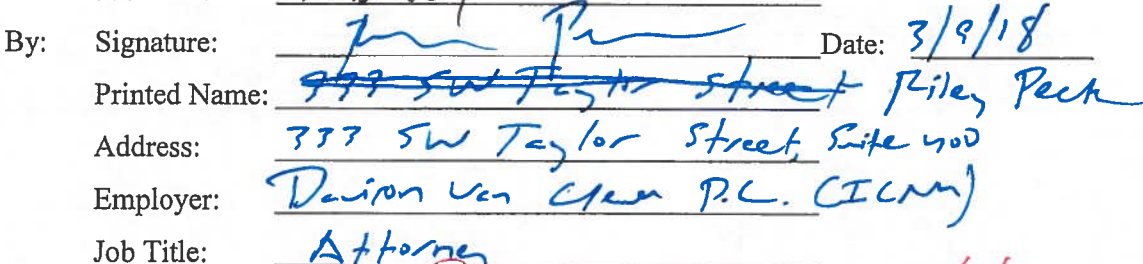 By: Signature: Date: 3/9/18
Printed Name: 333 SW Taylor Street Riley Peck
Address: 333 SW Taylor Street, Suite 400
Employer: Davison Van Cleve P.C. (ICNU)
Job Title: Attorney